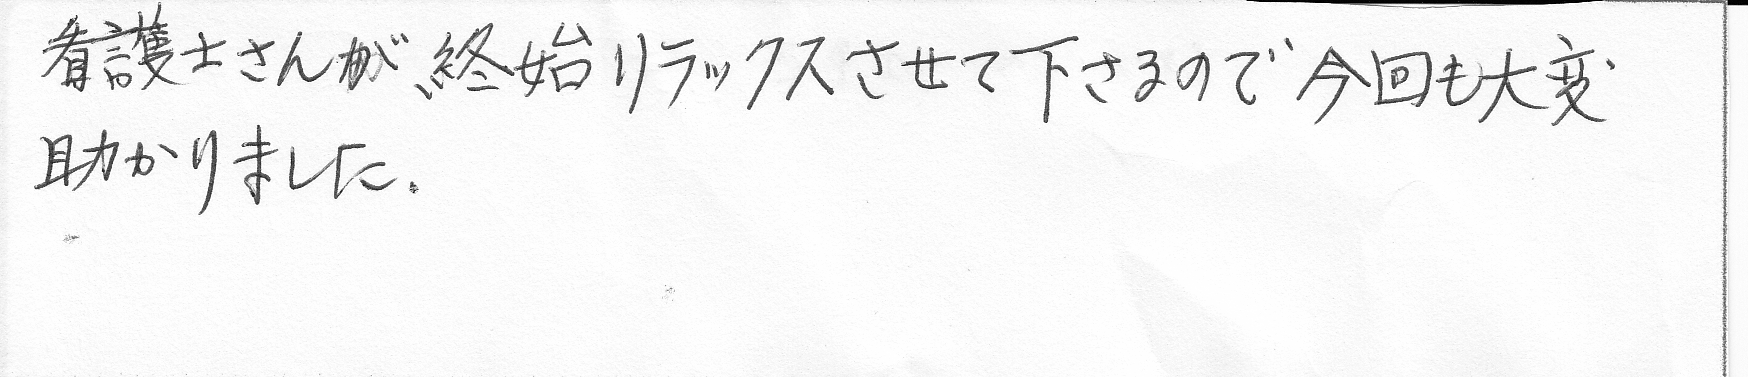 看護士さんが、終始リラックスさせて下さるので今回も大変
助かりました.